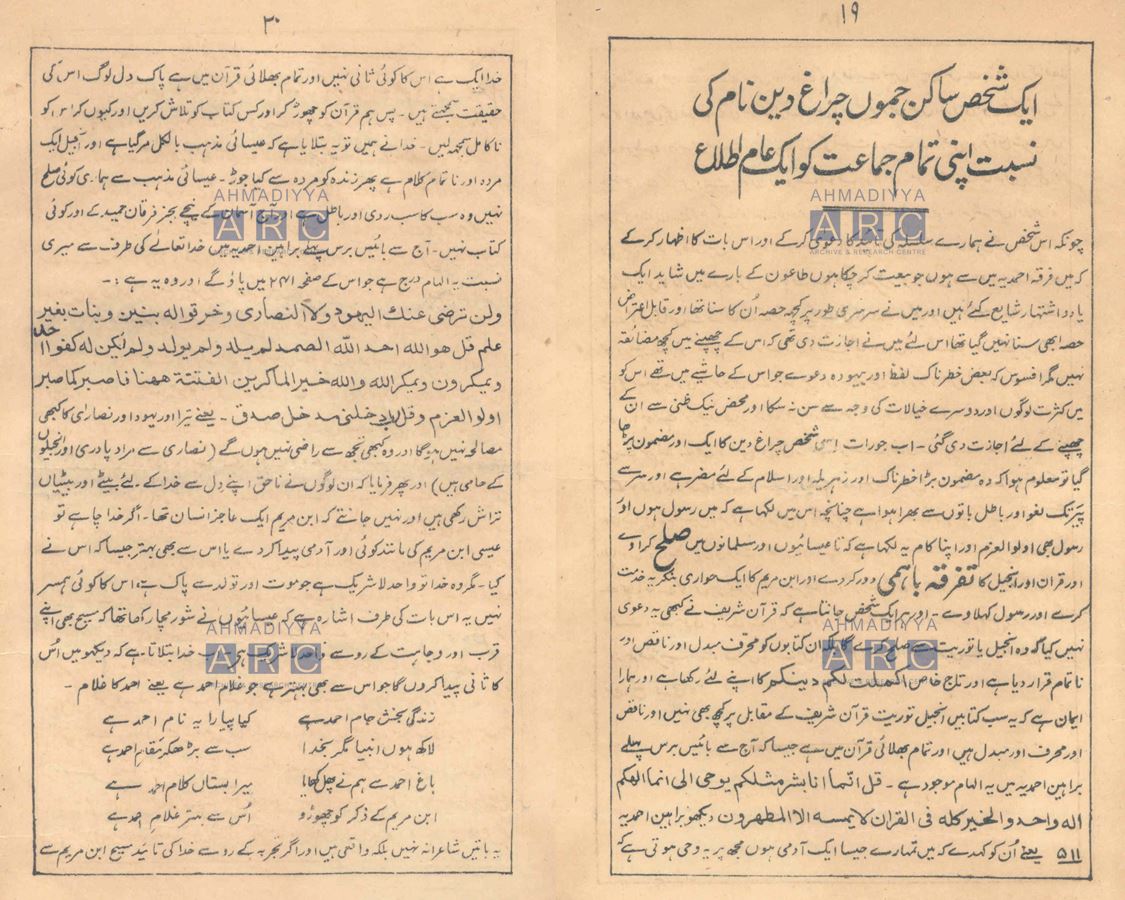 ۱۹
ایک شخص ساکن جموں چراغ دین نام کی
نسبت اپنی تمام جماعت کو ایک عام اطلاع
چونکہ اس شخص نے ہمارے سلسلہ کی تائید کا دعویٰ کرکے اور اس بات کا اظہار کرکے
کہ میں فرقہ احمدیہ میں سے ہوں جو بیعت کر چکا ہوں طاعون کے بارے میں شاید ایک
یا دو اشتہار شایع کئے ہیں اور میں نے سرسری طور پر کچھ حصہ اُن کا سنا تھا اور قابل اعتراض
حصہ ابھی سنا نہیں گیا تھا اس لئے میں نے اجازت دی تھی کہ اس کے چھپنے میں کچھ مضائقہ
نہیں مگر افسوس کہ بعض خطرناک لفظ اور بیہودہ دعوے جو اس کے حاشیے میں تھے اس کو
میں کثرت لوگوں اور دوسرے خیالات کی وجہ سے سن نہ سکا اور محض نیک ظنی سے ان کے
چھپنے کے لئے اجازت دی گئی ۔ اب جو رات اسی شخص چراغ دین کا ایک اور مضمون پڑھا
گیا تو معلوم ہوا کہ وہ مضمون بڑا خطرناک اور زہریلہ اور اسلام کے لئے مضر ہے اور سر سے
پیر تک لغو اور باطل باتوں سے بھرا ہوا ہے چنانچہ اس میں لکھا ہے کہ میں رسول ہوں اور
رسول بھی اولوالعزم اور اپنا کام یہ لکھا ہے کہ تا عیسائیوں اور مسلمانوں میں صلح کراوے
اور قران اور انجیل کا تفرقہ باہمی دور کردے اور ابن مریم کا ایک حواری بنکر یہ خدمت
کرے اور رسول کہلاوے ۔ اور ہر ایک شخص جانتا ہے کہ قرآن شریف نے کبھی یہ دعوی
نہیں کیا کہ وہ انجیل یا توریت سے صلح کرے گا بلکہ ان کتابوں کو محرف مبدل اور ناقص اور
ناتمام قرار دیا ہے اور تاج خاص اکملت لکم دینکم کا اپنے لئے رکھا ہے اور ہمارا
ایمان ہے کہ یہ سب کتابیں انجیل توریت قرآن شریف کے مقابل پر کچھ بھی نہیں اور ناقص
اور محرف اور مبدل ہیں اور تمام بھلائی قرآن میں ہے جیسا کہ آج سے بائیس برس پہلے
براہین احمدیہ میں یہ الہام موجود ہے ۔ قل انّما انا بشر مثلکم یوحی الی انما الھکم
الہ واحد والخیر کلہ فی القران لا یمسہ الا المطھرون دیکھو براہین احمدیہ
۵۱۱ یعنے اُن کو کہدے کہ میں تمہارے جیسا ایک آدمی ہوں مجھ پر یہ وحی ہوتی ہے کہ
AHMADIYYA
ARC
ARCHIVE & RESEARCH CENTRE
AHMADIYYA
ARC
۲۰
خدا ایک ہے اس کا کوئی ثانی نہیں اور تمام بھلائی قرآن میں ہے پاک دل لوگ اس کی
حقیقت سمجھتے ہیں ۔ پس ہم قرآن کو چھوڑ کر اور کس کتاب کو تلاش کریں اور کیوں کر اس کو
ناکامل سمجھ لیں ۔ خدا نے ہمیں تو یہ بتلایا ہے کہ عیسائی مذہب بالکل مر گیا ہے اور انجیل ایک
مردہ اور ناتمام کلام ہے پھر زندہ کو مردہ سے کیا جوڑ ۔ عیسائی مذہب سے ہماری کوئی صلح
نہیں وہ سب کا سب ردی اور باطل ہے اور آج آسمان کے نیچے بجز فرقان حمید کے اور کوئی
کتاب نہیں ۔ آج سے بائیس برس پہلے براہین احمدیہ میں خدا تعالےٰ کی طرف سے میری
نسبت یہ الہام درج ہے جو اس کے صفحہ ۲۴۱ میں پاؤ گے اور وہ یہ ہے :۔
ولن ترضی عنک الیھود ولا النصاری وخرقوا لہ بنین وبنات بغیر
علم قل ھو اللہ احد اللہ الصمد لم یلد ولم یولد ولم یکن لہ کفوا احد
ویمکرون ویمکر اللہ واللہ خیر الماکرین الفتنة ھھنا فاصبر کما صبر
اولوالعزم وقل رب ادخلنی مدخل صدق ۔ یعنے تیرا اور یہود اور نصاریٰ کا کبھی
مصالحہ نہیں ہوگا اور وہ کبھی تجھ سے راضی نہیں ہوں گے ( نصاریٰ سے مراد پادری اور انجیلوں
کے حامی ہیں ) اور پھر فرمایا کہ ان لوگوں نے ناحق اپنے دل سے خدا کے لئے بیٹے اور بیٹیاں
تراش رکھی ہیں اور نہیں جانتے کہ ابن مریم ایک عاجز انسان تھا ۔ اگر خدا چاہے تو
عیسیٰ ابن مریم کی مانند کوئی اور آدمی پیدا کردے یا اس سے بھی بہتر جیسا کہ اس نے
کیا ۔ مگر وہ خدا تو واحد لاشریک ہے جو موت اور تولد سے پاک ہے اس کا کوئی ہمسر
نہیں یہ اس بات کی طرف اشارہ ہے کہ عیسائیوں نے شور مچا رکھا تھا کہ مسیح بھی اپنے
قرب اور وجاہت کے روسے واحد لاشریک ہے اب خدا بتلاتا ہے کہ دیکھو میں اُس
کا ثانی پیدا کروں گا جو اس سے بھی بہتر ہے جو غلام احمد ہے یعنے احمد کا غلام ۔
زندگی بخش جام احمد ہے کیا پیارا یہ نام احمد ہے
لاکھ ہوں انبیا مگر بخدا سب سے بڑھکر مقام احمد ہے
باغ احمد سے ہم نے پھل کھایا میرا بستاں کلام احمد ہے
ابن مریم کے ذکر کو چھوڑو اُس سے بہتر غلام احمد ہے
یہ باتیں شاعرانہ نہیں بلکہ واقعی ہیں اور اگر تجربہ کے رو سے خدا کی تائید مسیح ابن مریم سے
AHMADIYYA
ARC
AHMADIYYA
ARC